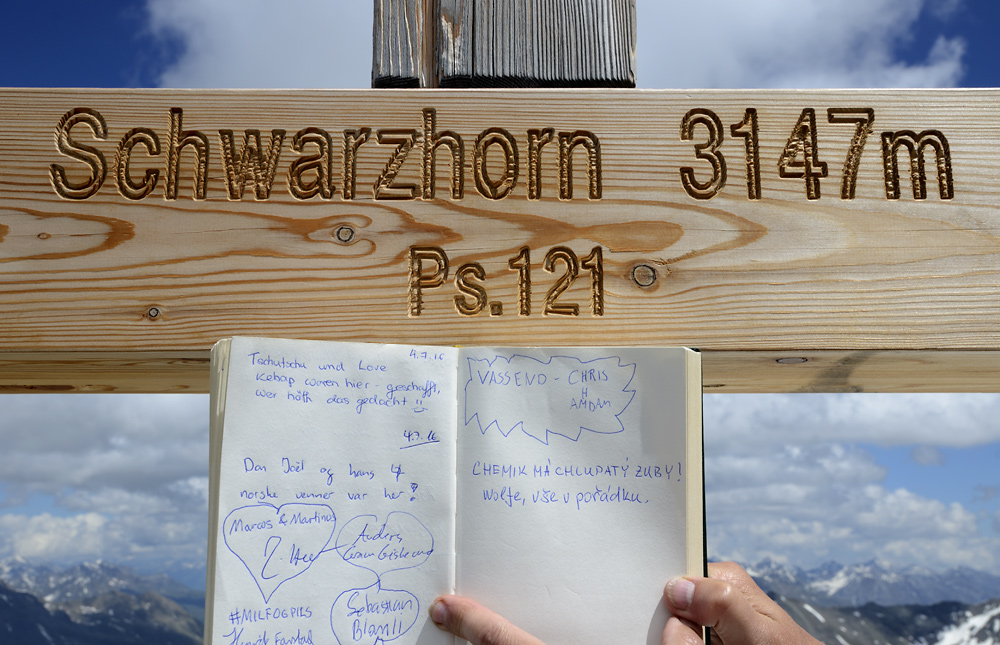 Schwarzhorn 3147m
Ps.121
4.7.16
Tschutschu und Love
Kebap waren hier - geschafft,
wer häth das gedacht
4.7.16
Dan Joël og hans 4
norske venner var her!
Marcus & Martinus
Anders
#MILFOGPILS
Sebastian
VASSEND - CHRIS
H
AMDAM
CHEMIK MÁ CHLUPATÝ ZUBY!
Wolfe, vše v pořádku.